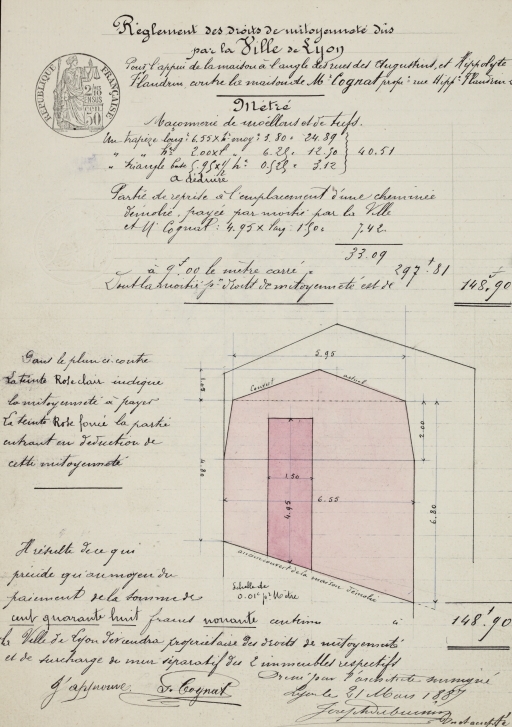 Règlement des droits de mitoyenneté dûs
par la Ville de Lyon
RÉPUBLIQUE FRANÇAISE
50
Pour l'appui de la maison à l'angle des rues des Augustins, et Hippolyte
Flandrin contre la maison de Mr Cognat propre rue Hippte Flandrin
Métré
Maçonnerie de moëllons et de trefs.
Un trapèze longr 6.55 x hr moyne 3.80 = 24.89
" " hr 2.00 x lr " 6.25 = 12.50 } 40.51
" triangle base 5.95 x 1/2 hr 0.525 = 3.12
à déduire
Partie de reprise à l'emplacement d'une cheminée
démolie, payée par moitié par la Ville
et Mr Cognat : 4.95 x larg. 1.50 = 7.42
33.09
à 9f.00 le mètre carré = 297f.81
Dont la moitié pr droits de mitoyenneté est de 148f.90
5.95
Couvert actuel
1.05
Dans le plan ci-contre
La teinte Rose clair indique
la mitoyenneté à payer
La teinte Rose foncé la partie
entrant en déduction de
cette mitoyenneté
2.00
4.80
1.50
4.95
6.55
6.80
ancien couvert de la maison démolie
Echelle de
0.01c pr Mètre
Il résulte de ce qui
précède qu'au moyen du
paiement de la somme de
cent quarante huit francs nonante centimes 148f.90
la Ville de Lyon deviendra propriétaire des droits de mitoyenneté
et de surcharge du mur séparatif des 2 immeubles respectifs
Dressé par l'architecte soussigné
Lyon le 21 Mars 1887
J'approuve Fs Cognat